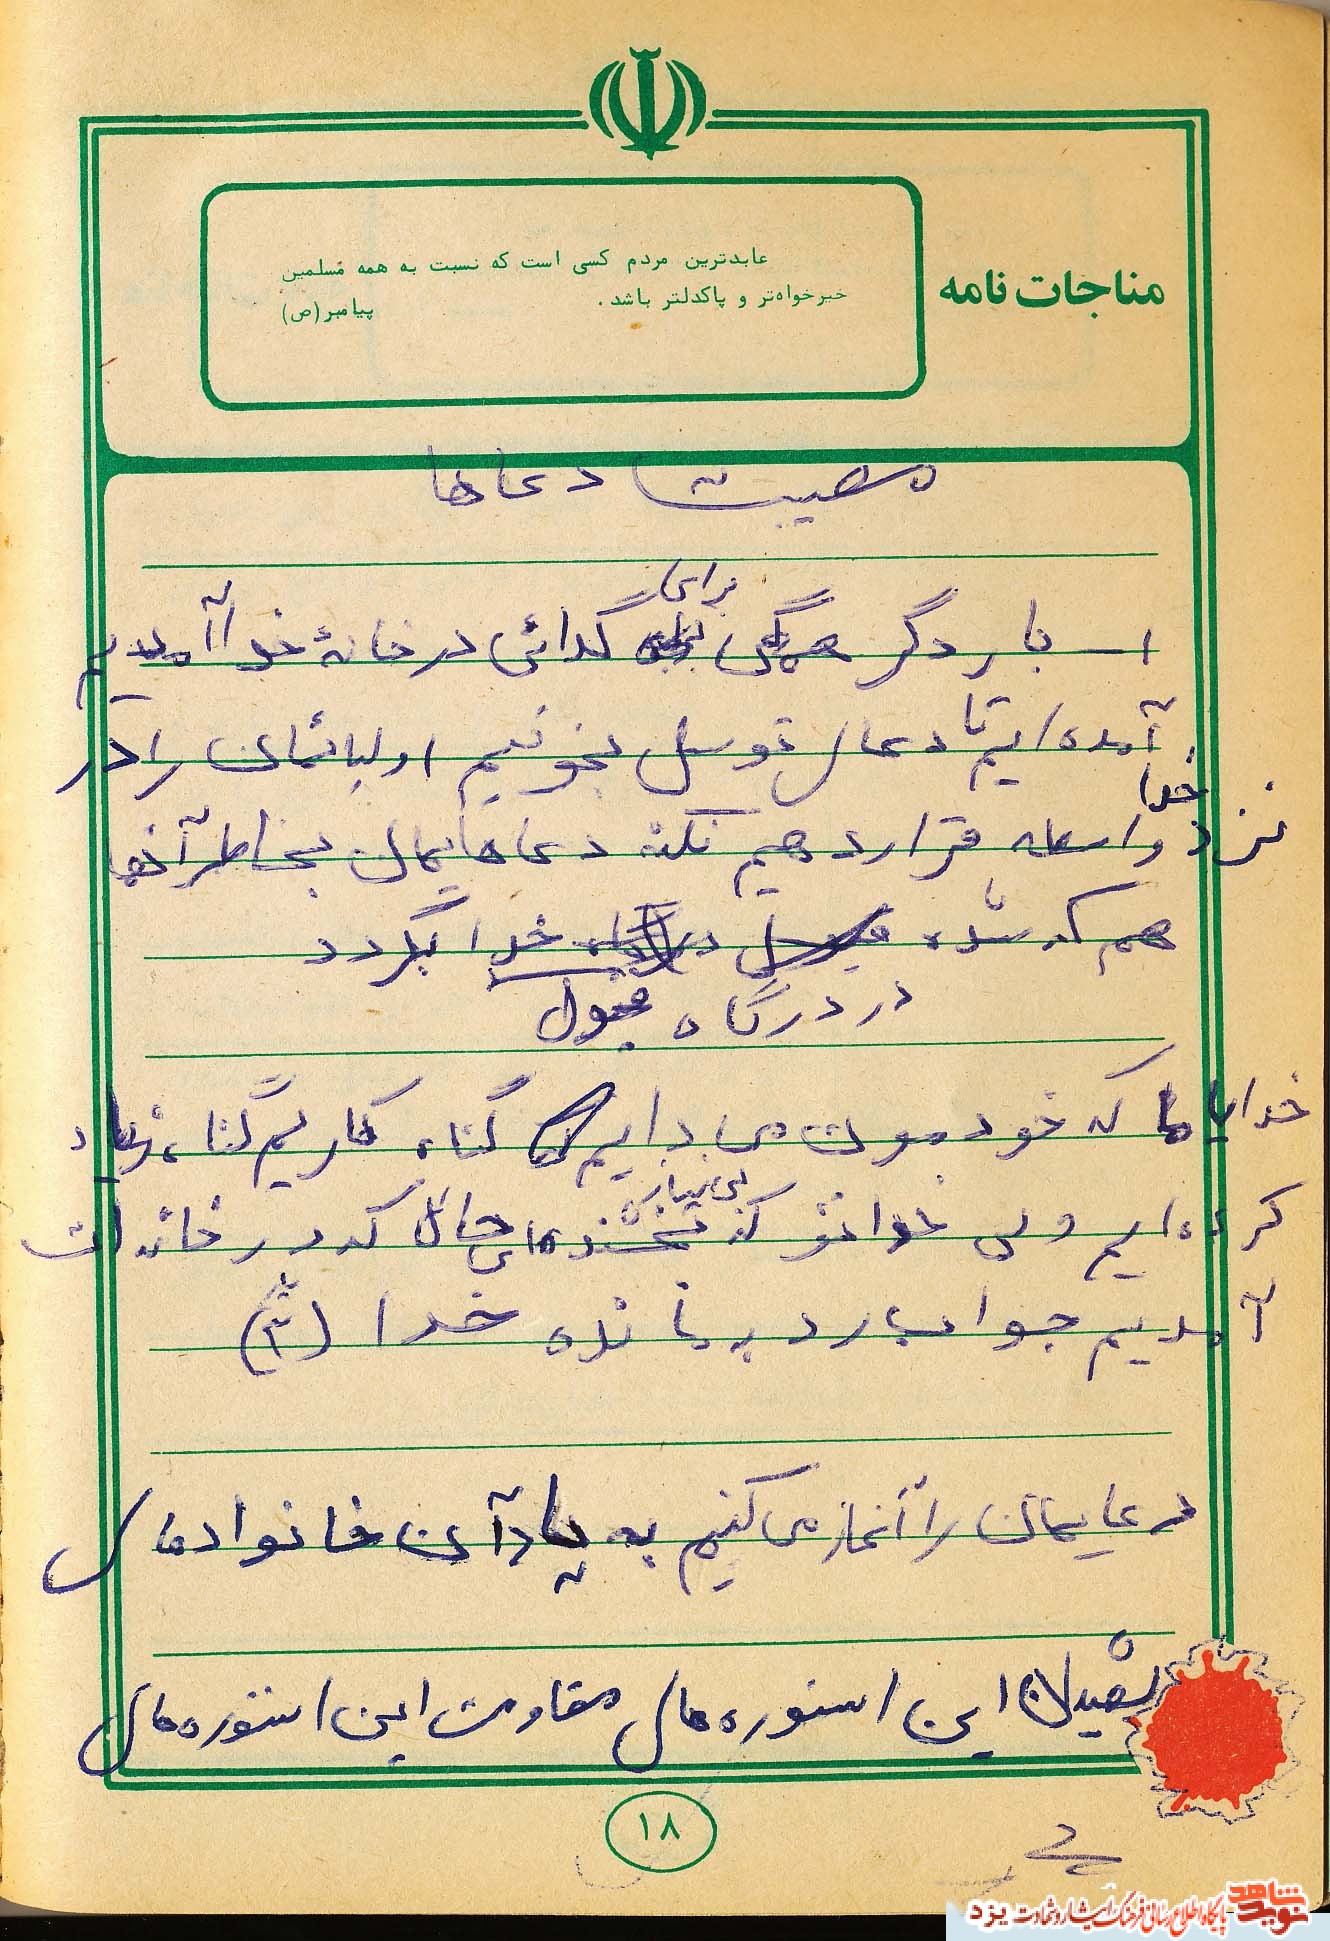 مناجات نامه
عابدترین مردم کسی است که نسبت به همه مسلمین
خیرخواه‌تر و پاکدلتر باشد.
پیامبر(ص)
مصیبت دعاها
برای
۱ـ بار دگر همگی گدائی در خانهٔ خدا آمدیم
آمده‌ایم تا دعای توسل بخونیم اولیائمان را در
خدا
نزد واسطه قرار دهیم نکنه دعاهایمان بخاطر آنها
هم که شده قبول خدا بگردد
در درگاه قبول
خدایا ما که خودمون می‌دانیم گناه کاریم گناه زیاد
بی‌نیاز
کرده‌ایم ولی خدا تو که بخشنده‌ای حال که در خانه‌ات
آمدیم جواب رد به ما نده خدا (۳)
دعایمان را آغاز می‌کنیم به یاد آن خانواده‌های
شهیدان این اسنوره‌های مقاومت این اسنوره‌های
۱۸
شاهد
نوید
پایگاه اطلاع رسانی فرهنگ ایثار و شهادت یزد